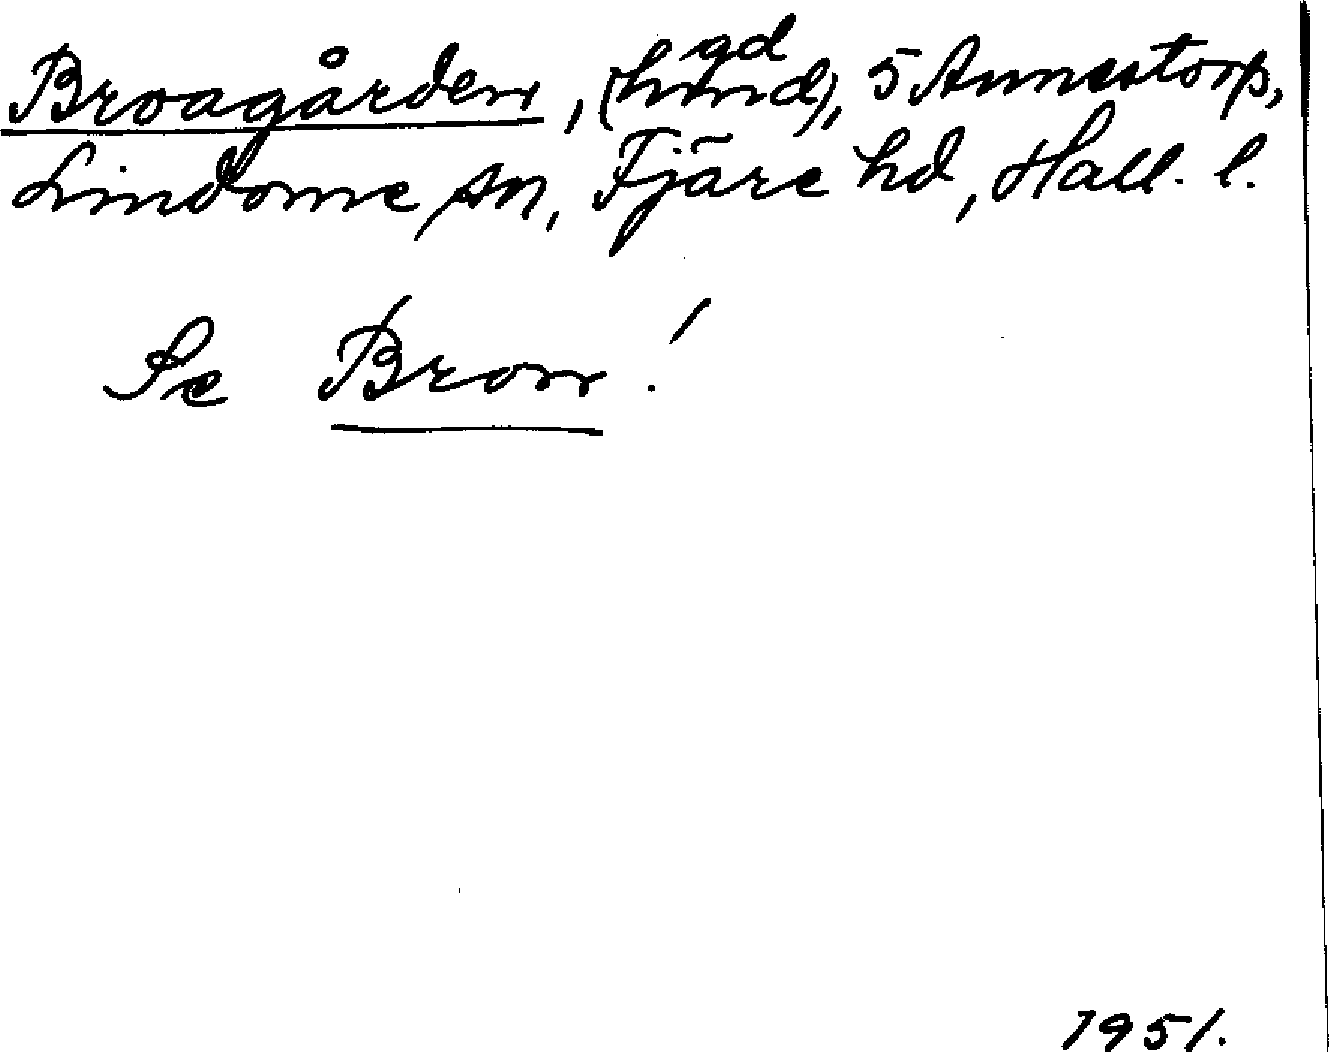 Broagården, (hmnd), gd 5 Annestorp,
Lindome sn, Fjäre hd, Hall. l.
Se Bron!
1951.